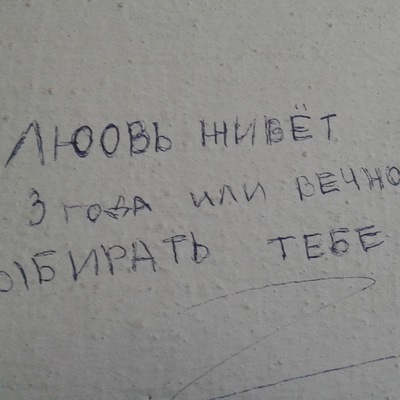 ЛЮБОВЬ ЖИВЁТ
3 года или ВЕЧНО
ЫБИРАТЬ ТЕБЕ